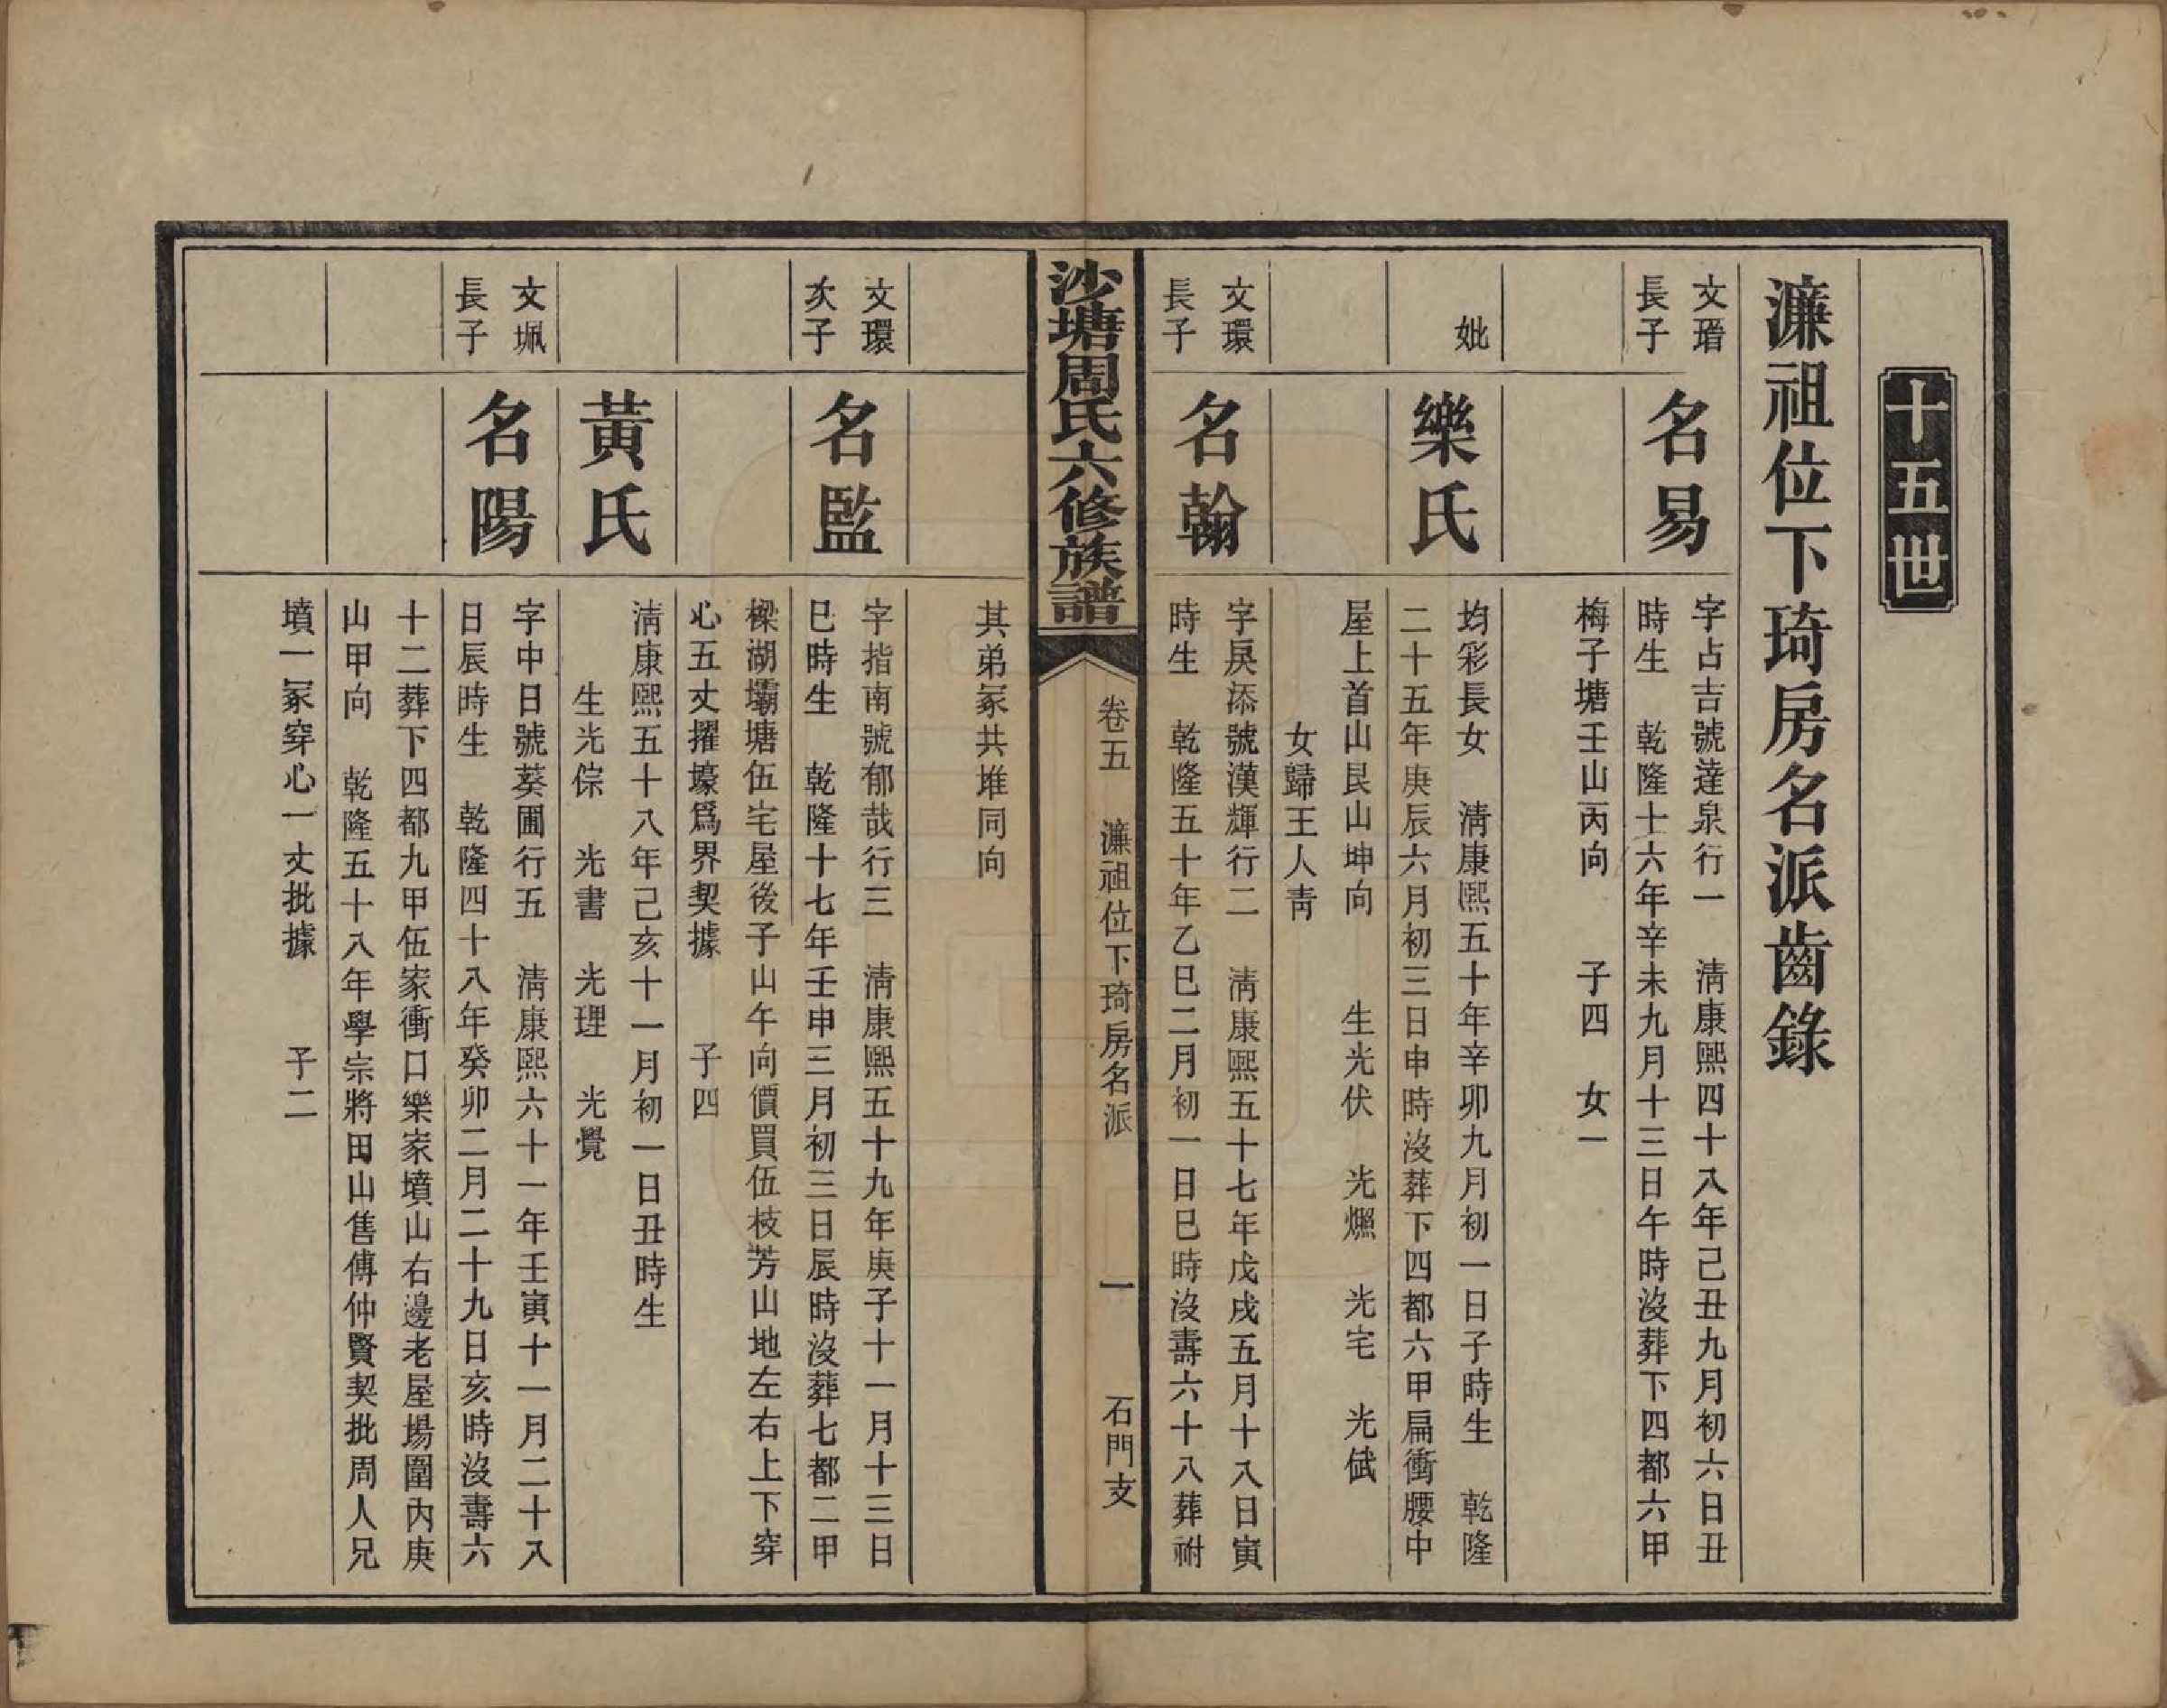 十五世
濂祖位下琦房名派齒錄
文瑨
長子
名易
字占吉號達泉行一　清康熙四十八年己丑九月初六日丑
時生　乾隆十六年辛未九月十三日午時沒葬下四都六甲
梅子塘壬山丙向　　子四　女一
妣
樂氏
均彩長女　清康熙五十年辛卯九月初一日子時生　乾隆
二十五年庚辰六月初三日申時沒葬下四都六甲扁衝腰中
屋上首山艮山坤向　　生光伏　光燃　光宅　光倵
女歸王人靑
文環
長子
名翰
字添號漢輝行二　清康熙五十七年戊戌五月十八日寅
時生　乾隆五十年乙巳二月初一日巳時沒壽六十八葬祔
其弟冢共堆同向
沙塘周氏六修族譜
卷五　濂祖位下琦房名派
一
石門支
文環
次子
名監
字指南號郁哉行三　清康熙五十九年庚子十一月十三日
巳時生　乾隆十七年壬申三月初三日辰時沒葬七都二甲
樑湖壩塘伍宅屋後子山午向價買伍枝芳山地左右上下穿
心五丈擢壕爲界契據　　子四
黃氏
清康熙五十八年己亥十一月初一日丑時生
生光倧　光書　光理　光覺
文珮
長子
名陽
字中日號葵圃行五　清康熙六十一年壬寅十一月二十八
日辰時生　乾隆四十八年癸卯二月二十九日亥時沒壽六
十二葬下四都九甲伍家衝口樂家墳山右邊老屋場圍內庚
山甲向　乾隆五十八年學宗將田山售傅仲賢契批周人兄
墳一冢穿心一丈批據　　子二